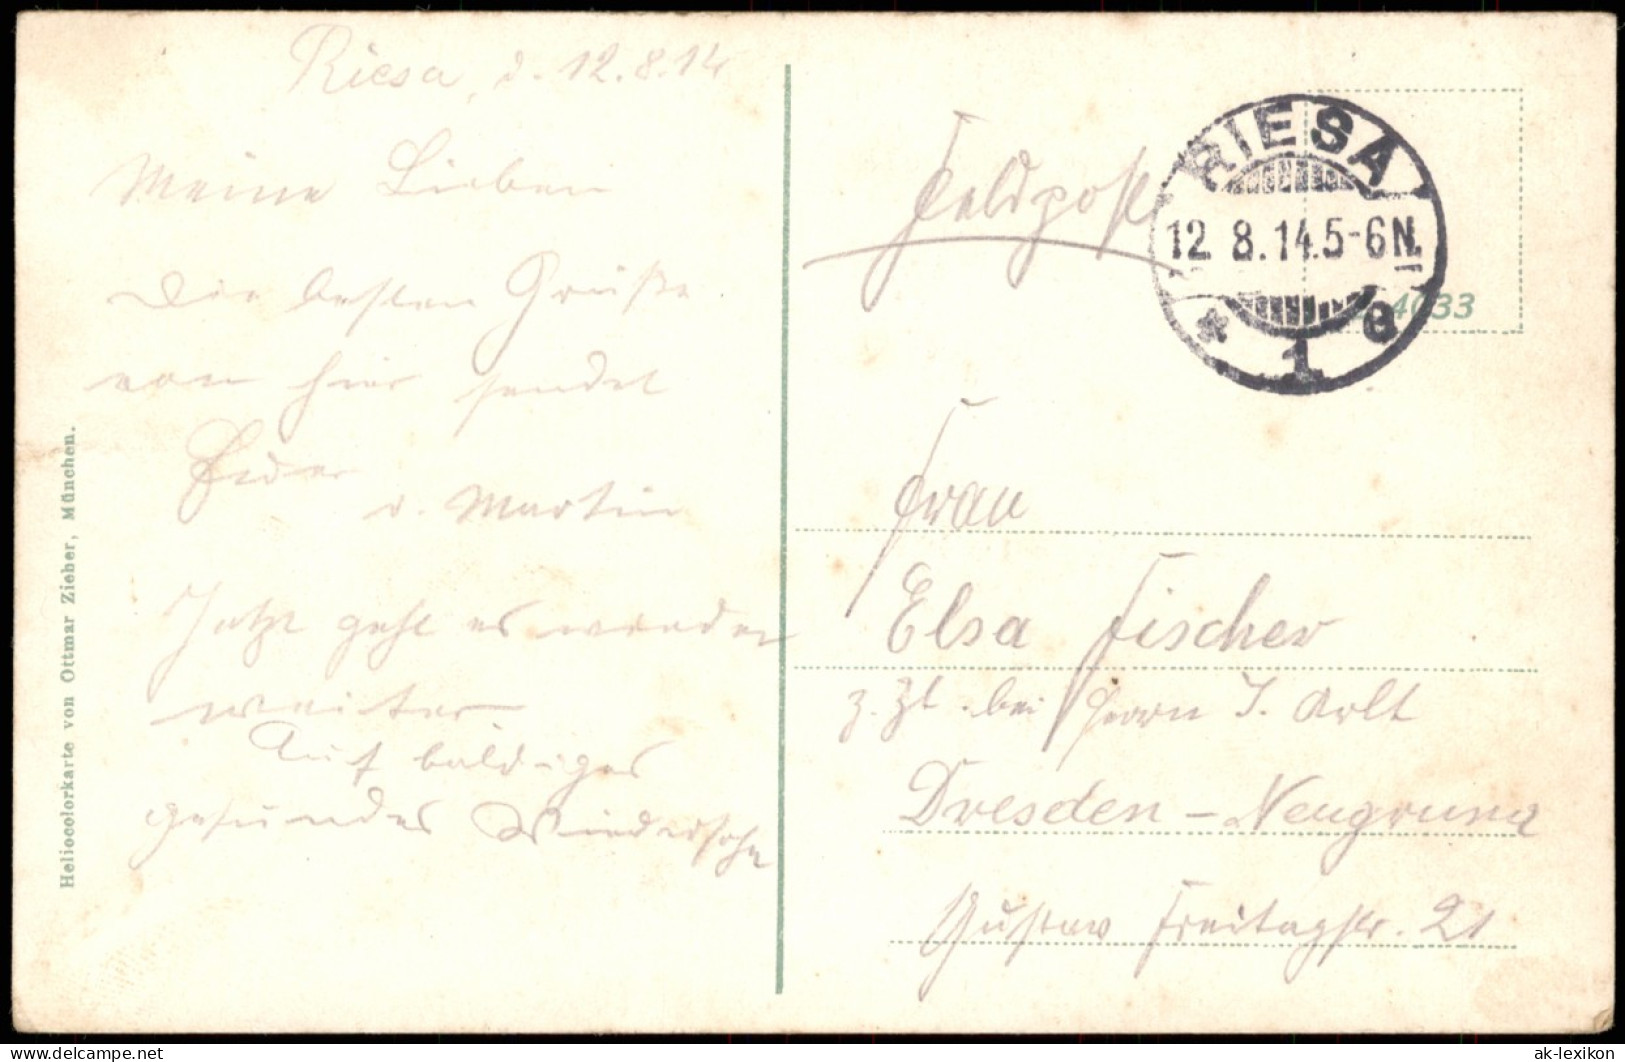 Riesa, d. 12.8.14
Meine Lieben
Die besten Grüße
von hier sendet
d. Martin
Jetzt geht es wieder
weiter.
Auf baldiges
gesundes Wiedersehn
Heliocolorkarte von Ottmar Zieher, München.
Feldpost
RIESA
12.8.14.5-6N.
* 1 a
4033
Frau
Elsa Fischer
z. Zt. bei Herrn J. Arlt
Dresden-Neugruna
Gustav Freitagstr. 21
ak-lexikon
delcampe.net